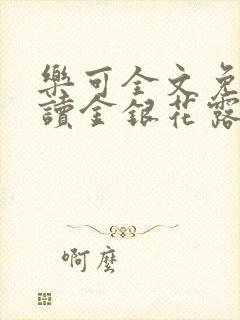 樂可全文免
讀金銀花露
啊麼